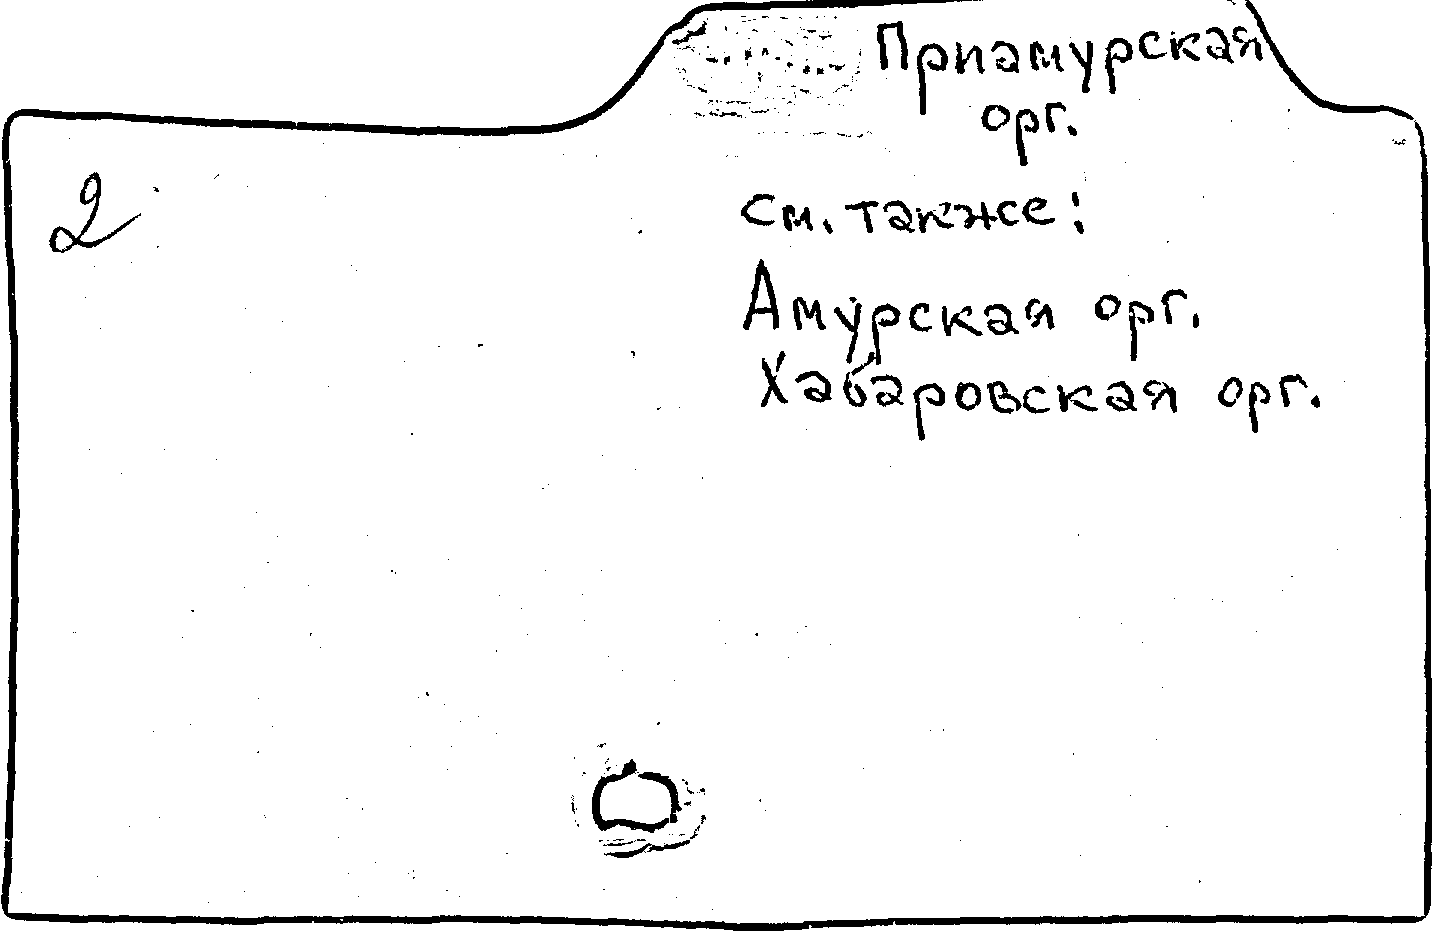 Приамурская
орг.
2
см. также:
Амурская орг.
Хабаровская орг.